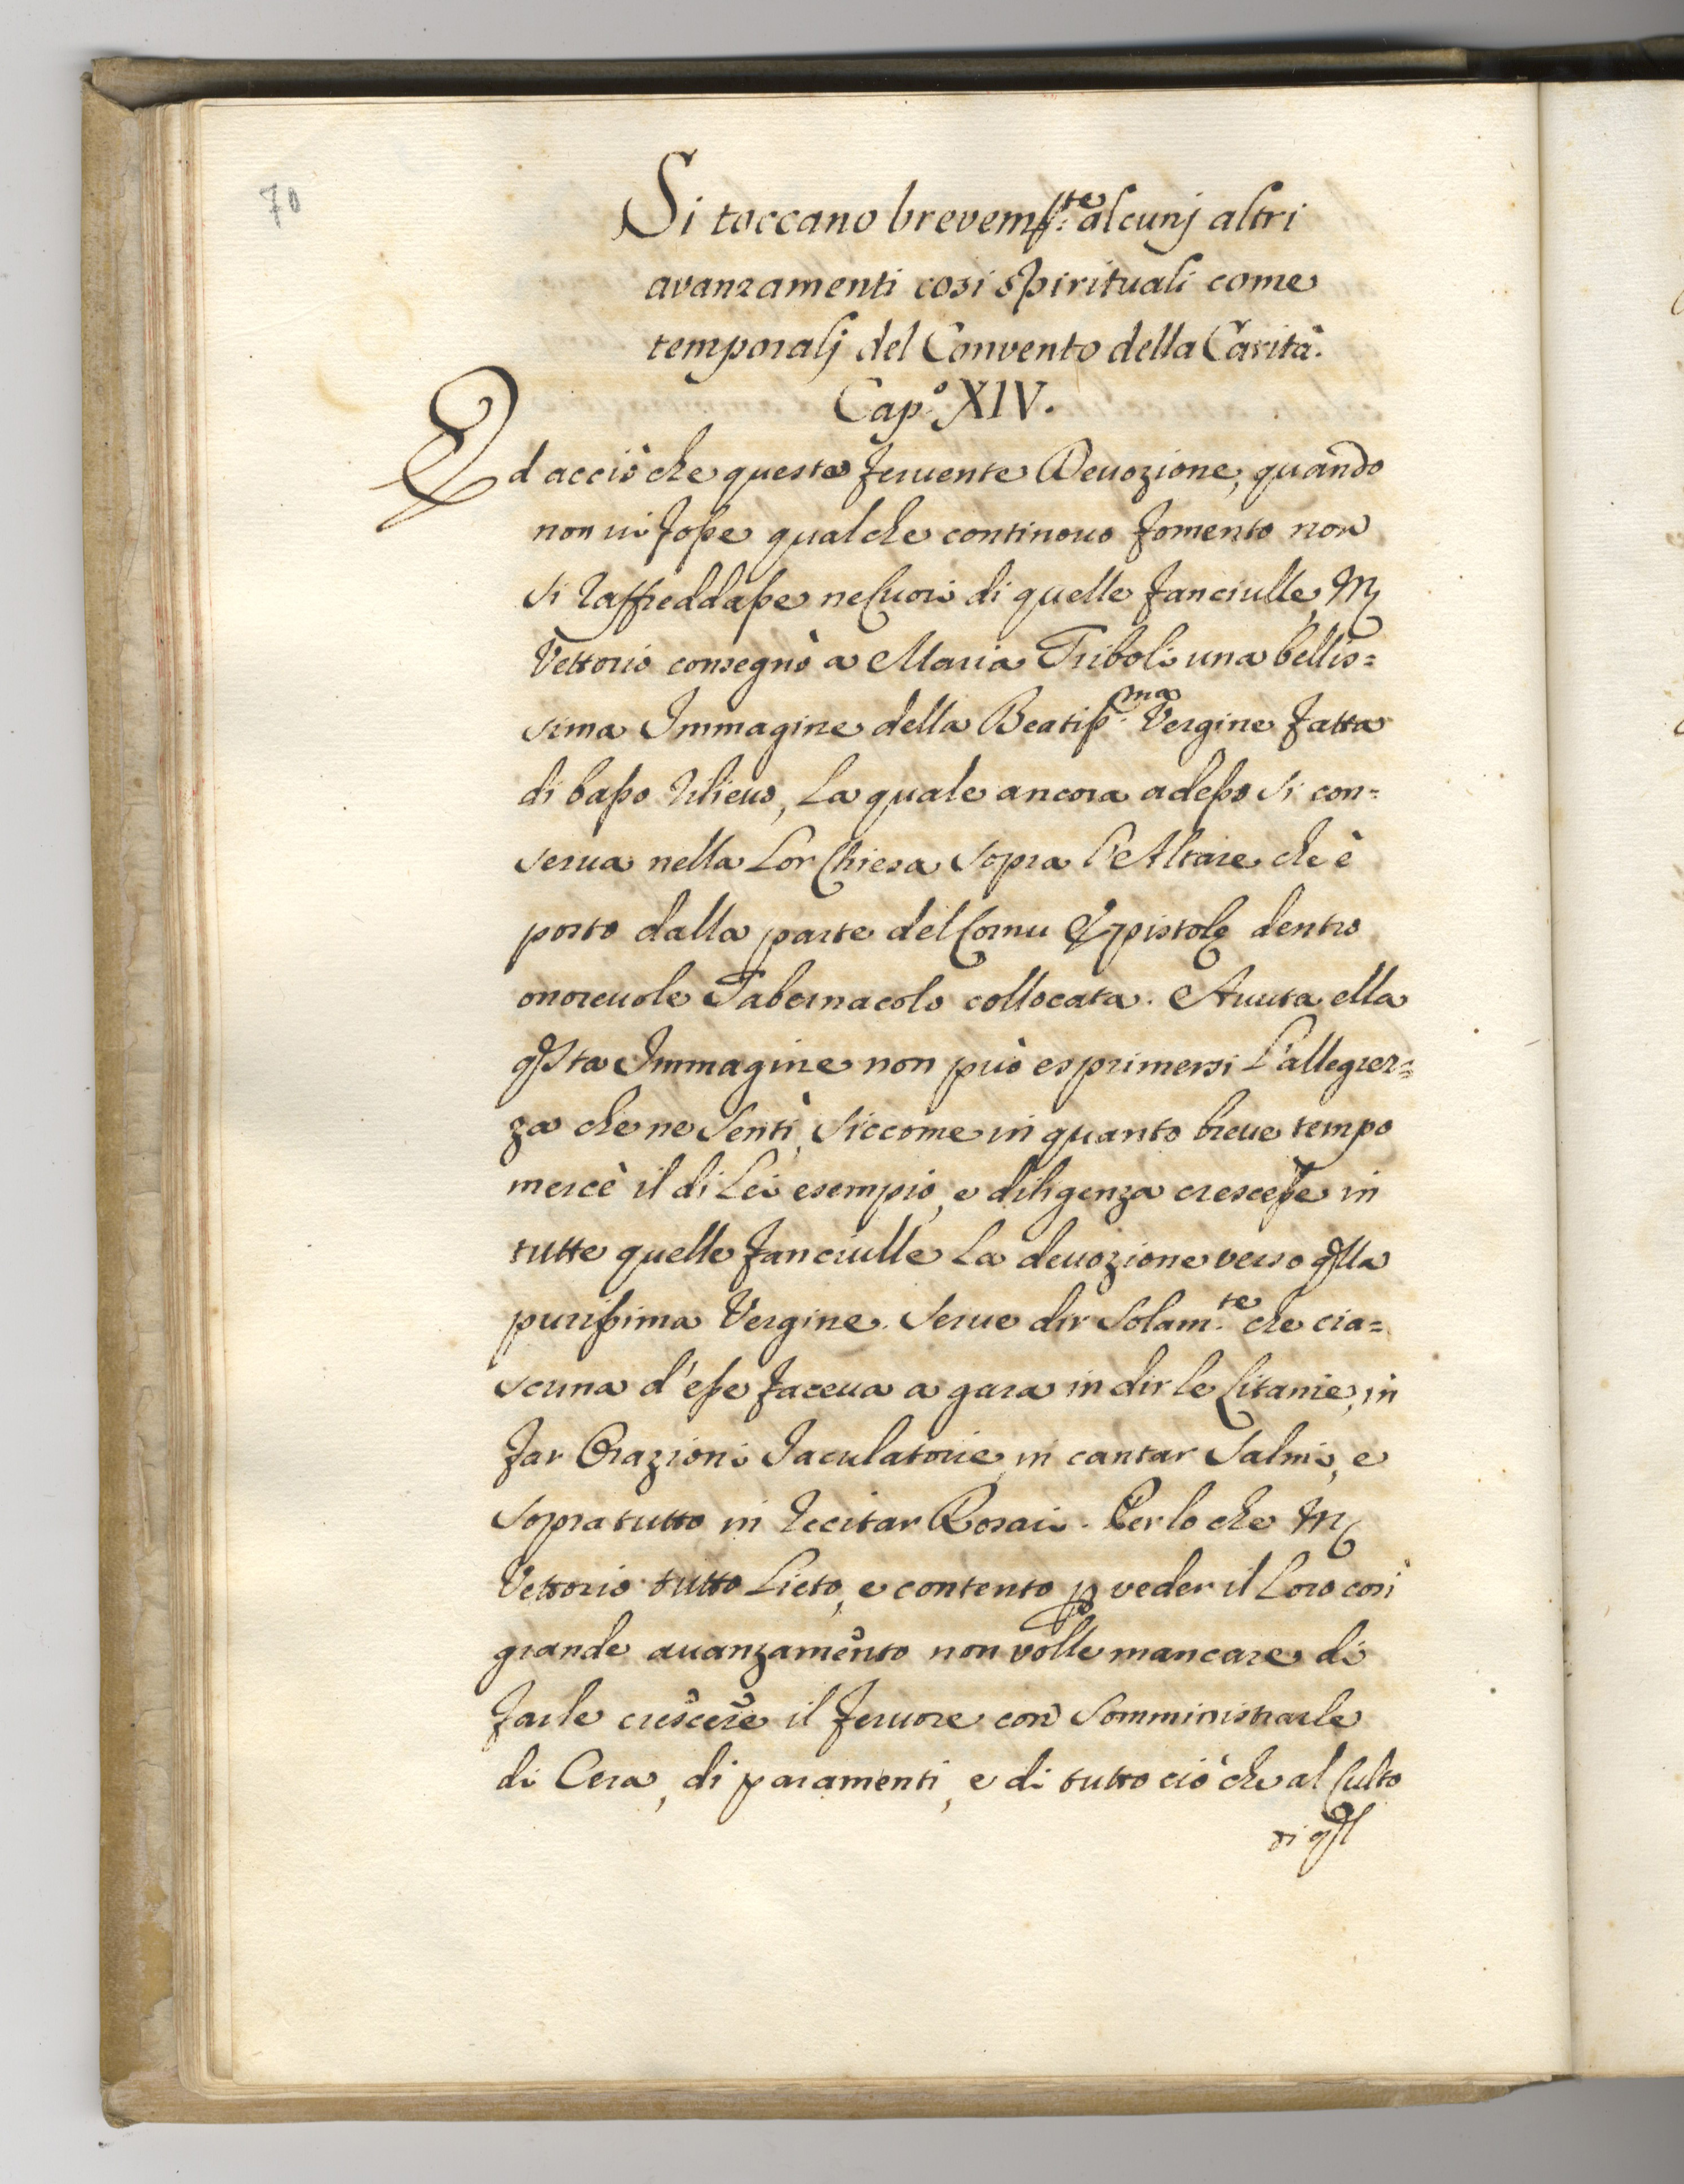 70
Si toccano brevem.te alcunj altri
avanzamenti cosi spirituali come
temporalj del Convento della Carità.
Cap.º XIV.
Ed acciò che questa fervente Devozione, quando
non vi fosse qualche continovo fomento non
si raffreddasse ne Cuori di quelle fanciulle, M
Vettorio consegnò a Maria Triboli una bellis=
sima Immagine della Beatiss.ma Vergine fatta
di basso rilievo, La quale ancora adesso si con=
serva nella Lor Chiesa sopra l'Altare che è
posto dalla parte del Cornu Epistolę dentro
onorevole Tabernacolo collocata. Avuta ella
qsta Immagine non può esprimersi l'allegrez=
za che ne sentì, siccome in quanto breve tempo
mercè il di Lei esempio, e diligenza crescesse in
tutte quelle fanciulle La devozione verso qlla
purissima Vergine. Serve dir solam.te che cia=
scuna d'esse faceva a gara in dir le Litanie, in
far Orazioni Iaculatorie, in cantar Salmi, e
sopra tutto in recitar Rosari. Per lo che M
Vettorio tutto Lieto, e contento p veder il Loro così
grande avanzamento non volle mancare di
farle crescere il fervore con somministrarle
di Cera, di paramenti, e di tutto ciò che al Culto
di qll